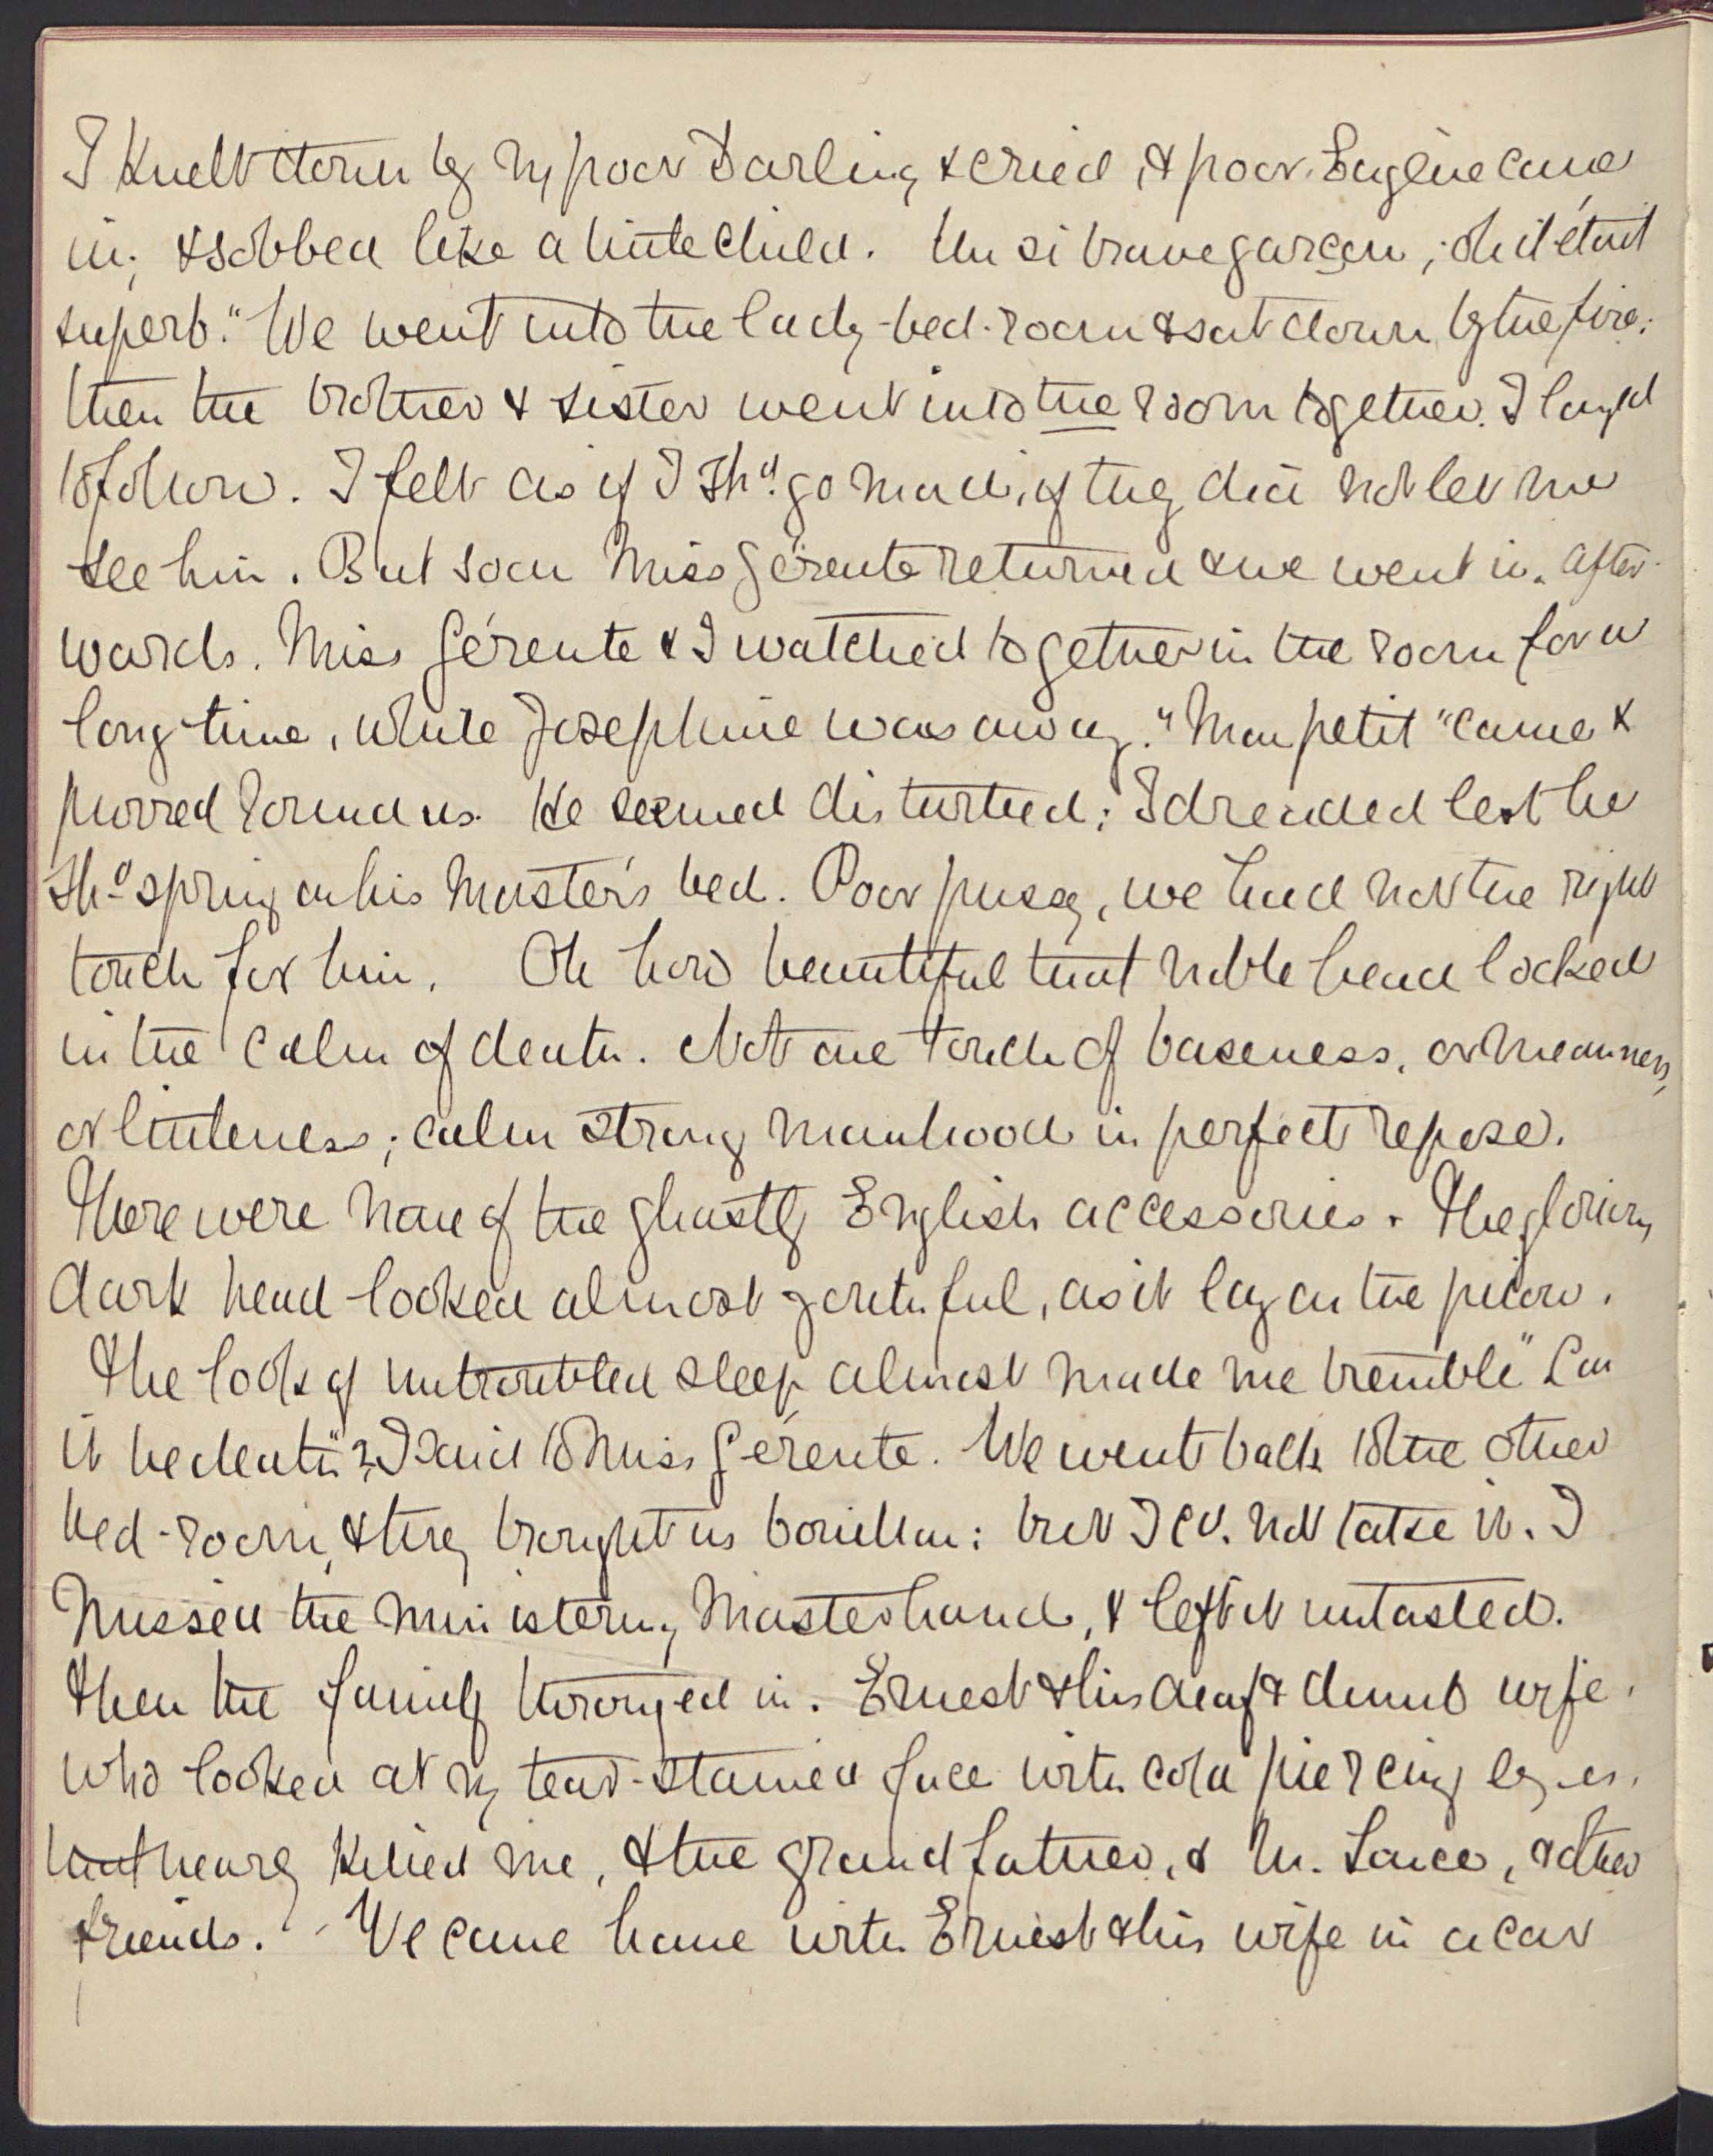 I knelt down by my poor Darling & cried, & poor Eugène came
in; & sobbed like a little child. Un si brave garçon; oh il était
superb." We went into the lady-bed-room & sat down by the fire:
then the brother & sister went into the room together. I longed
to follow. I felt as if I shd. go mad, if they did not let me
see him. But soon Miss Gérente returned & we went in. After-
wards. Miss Gérente & I watched together in the room for a
long time, while Josephine was away. "Mon petit" came &
purred round us. He seemed disturbed; I dreaded lest he
shd spring on his Master's bed. Poor pussy, we had not the right
touch for him. Oh how beautiful that noble head looked
in the calm of death. Not one touch of baseness, or meanness,
or littleness; calm strong manhood in perfect repose.
There were none of the ghastly English accessories. The glorious
dark head looked almost youthful, as it lay on the pillow.
The look of untroubled sleep almost made me tremble "Can
it be death"? I said to Miss Gérente. We went back to the other
bed-room, & they brought us bouillon: but I cd. not take it. I
missed the ministering Master hand, & left it untasted.
Then the family thronged in. Ernest & his deaf & dumb wife.
who looked at my tear-stained face with cold piercing eyes.
that nearly killed me, & the grandfather, & M. , & other
friends. We came home with Ernest & his wife in a car